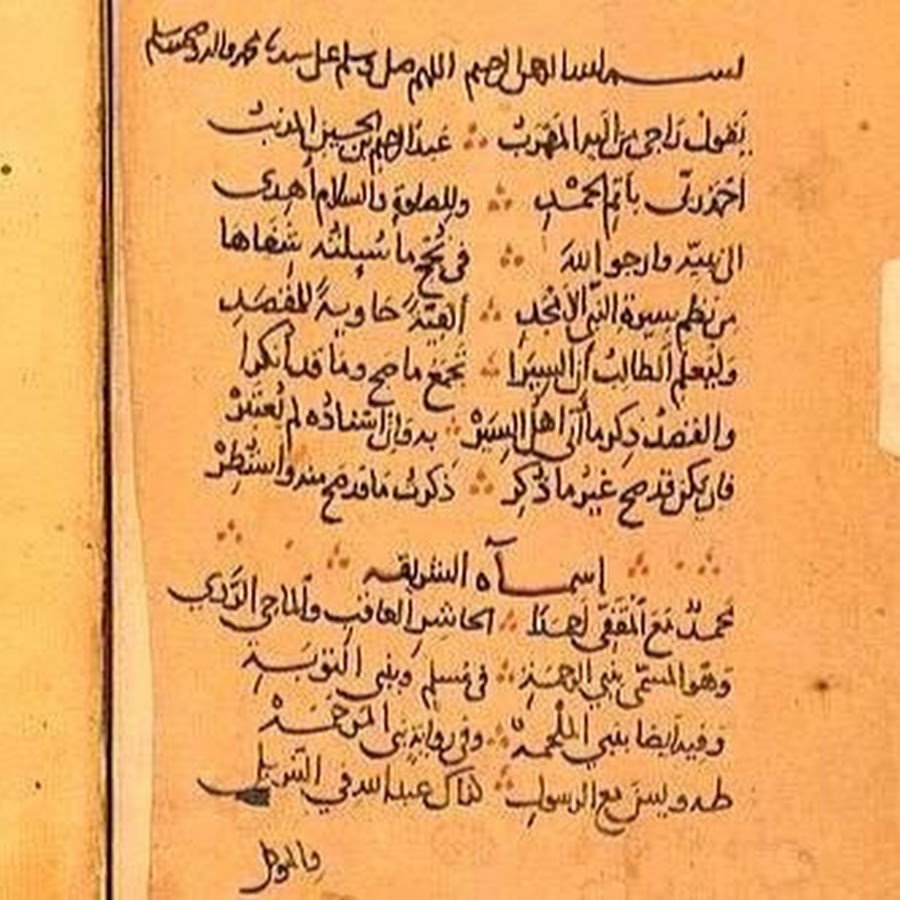 بسم الله الرحمن الرحيم اللهم صل وسلم على سيدنا محمد واله وصحبه وسلم
يَقُولُ رَاجِي مَنْ اِلَيهِ المَهْرَبُ ∴ عَبدُ الرحيم بن الحسين المذنبُ
اَحْمَدُ رَبّى بِاَتَمِّ الحَمْدِ ∴ وللصلوةِ والسلامِ اُهدى
الى نبيّه وارجو اللهَ ∴ فى نُجْحِ ما سُيِلتُه شِفَاهَا
من نظم سيرة النبّى الاَمْجَدِ ∴ اَلفيّةً حَاويةً للمَقْصَدِ
وَليَعلَمِ الطالبُ اَنّ السِيَرَا ∴ تَجمَعُ ما صحَ ومَا قد اُنكرا
والقصدُ ذِكرُ ما اَتى اَهلُ السِّيَرْ ∴ به وَاِنْ اِسْنادُه لم يُعتَبَرْ
فاِن يكن قد صح غيرُ ما ذُكِر ∴ ذكرتُ مَا قد صَح منه واستُطِرْ
اسماۤه الشريفه
مُحمدٌ مَعَ المُقَفّى اَحمدَا ∴ الحاشِرِ العاقبِ والماحى الرَدي
وَهْوَ المسَمّى بنبي الرحمَةِ ∴ فى مُسلمٍ وبنبى التوبَةِ
وفيه ايضا بنبي المَلْحَمَهْ ∴ وفى روايةٍ نبى المَرْحَمَهْ
طه ويسَ مع الرسولِ ∴ كذاك عبد الله في التنزيل
والمتوكل